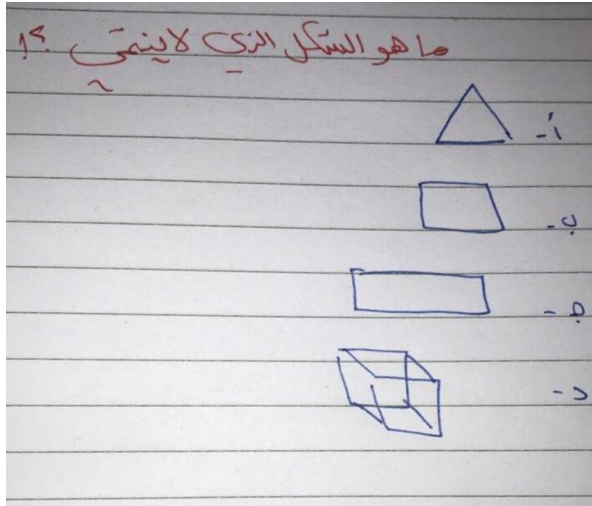 ما هو الشكل الذي لا ينتمي ؟!
أ-
ب-
ج-
د-